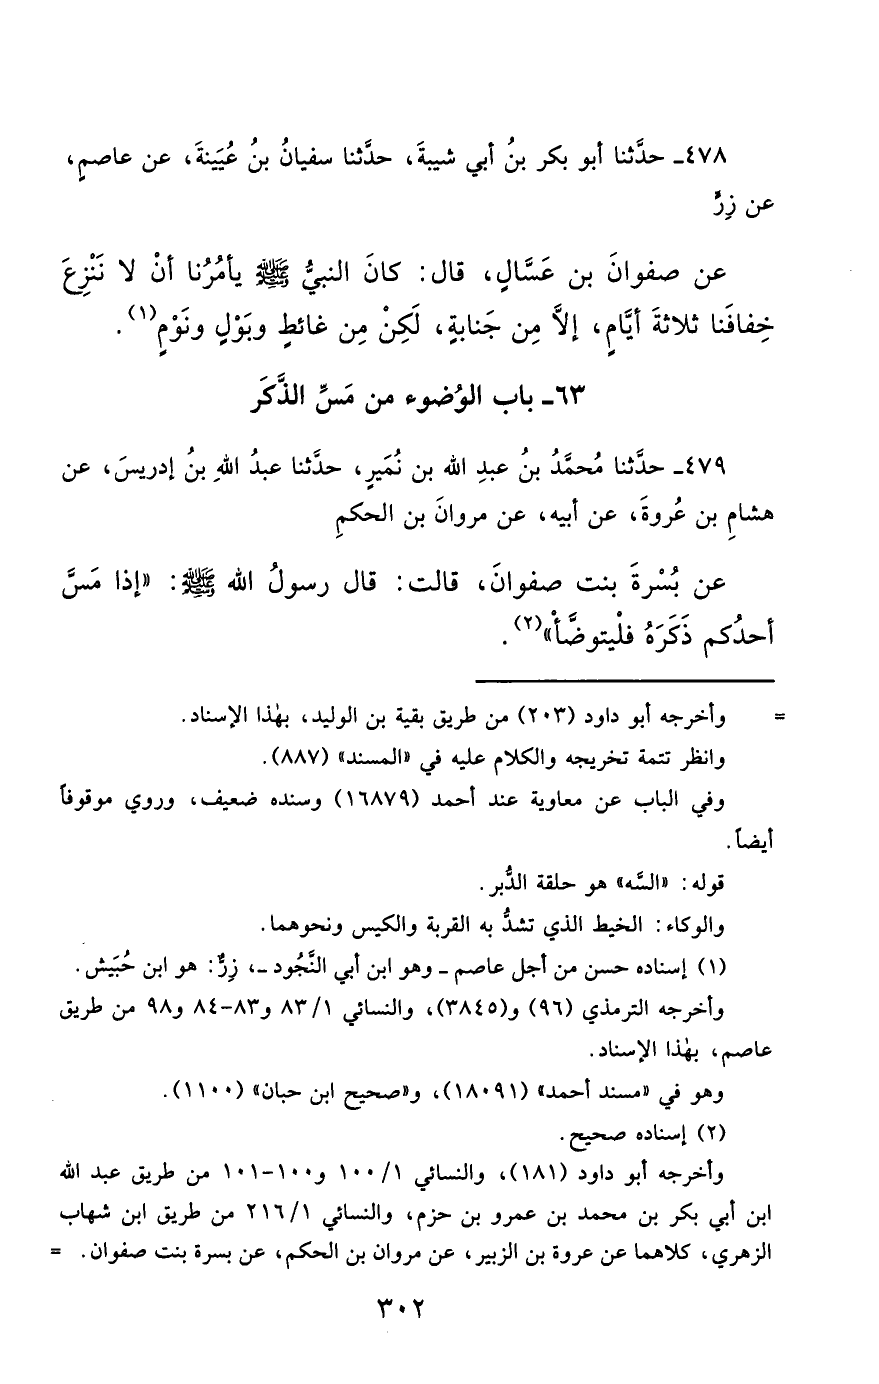 ٤٧٨ـ حدَّثنا أبو بكر بنُ أبي شيبةَ، حدَّثنا سفيانُ بنُ عُيَينةَ، عن عاصمٍ،
عن زِرٍّ
عن صفوانَ بن عَسَّالٍ، قال: كانَ النبيُّ ﷺ يأمُرُنا أنْ لا نَنْزِعَ
خِفافَنا ثلاثةَ أيَّامٍ، إلاَّ مِن جَنابةٍ، لَكِنْ مِن غائطٍ وبَوْلٍ ونَوْمٍ(١).
٦٣ـ باب الوُضوء من مَسِّ الذَّكَر
٤٧٩ـ حدَّثنا مُحمَّدُ بنُ عبدِ الله بن نُمَيرٍ، حدَّثنا عبدُ اللهِ بنُ إدريسَ، عن
هشامِ بن عُروةَ، عن أبيه، عن مروانَ بن الحكمِ
عن بُسْرةَ بنت صفوانَ، قالت: قال رسولُ الله ﷺ: «إذا مَسَّ
أحدُكم ذَكَرَهُ فلْيتوضَّأْ»(٢).
= وأخرجه أبو داود (٢٠٣) من طريق بقية بن الوليد، بهٰذا الإسناد.
وانظر تتمة تخريجه والكلام عليه في «المسند» (٨٨٧).
وفي الباب عن معاوية عند أحمد (١٦٨٧٩) وسنده ضعيف، وروي موقوفاً
أيضاً.
قوله: «السَّه» هو حلقة الدُّبر.
والوكاء: الخيط الذي تشدُّ به القربة والكيس ونحوهما.
(١) إسناده حسن من أجل عاصم ـ وهو ابن أبي النَّجُود ـ، زِرٌّ: هو ابن حُبَيش.
وأخرجه الترمذي (٩٦) و(٣٨٤٥)، والنسائي ١/ ٨٣ و٨٣-٨٤ و٩٨ من طريق
عاصم، بهٰذا الإسناد.
وهو في «مسند أحمد» (١٨٠٩١)، و«صحيح ابن حبان» (١١٠٠).
(٢) إسناده صحيح.
وأخرجه أبو داود (١٨١)، والنسائي ١/ ١٠٠ و١٠٠-١٠١ من طريق عبد الله
ابن أبي بكر بن محمد بن عمرو بن حزم، والنسائي ١/ ٢١٦ من طريق ابن شهاب
الزهري، كلاهما عن عروة بن الزبير، عن مروان بن الحكم، عن بسرة بنت صفوان. =
٣٠٢